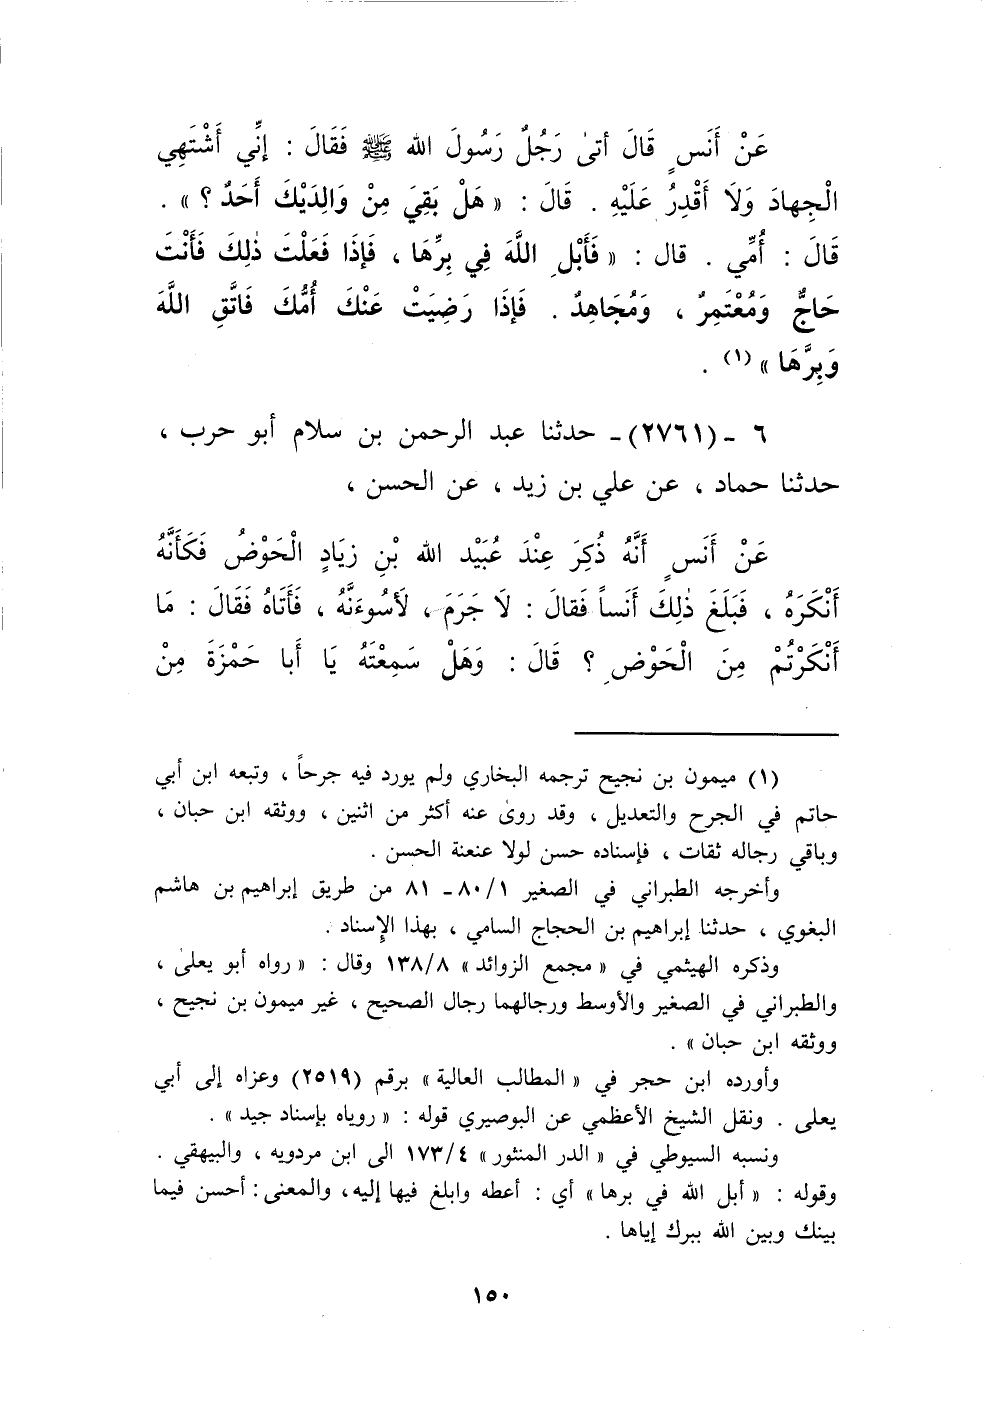 عَنْ أَنَسٍ قَالَ أتىٰ رَجُلٌ رَسُولَ الله ﷺ فَقَالَ : إنِّي أَشْتَهِي
الْجِهادَ وَلَا أَقْدِرُ عَلَيْهِ . قَالَ : « هَلْ بَقِيَ مِنْ وَالِدَيْكَ أَحَدٌ ؟ » .
قَالَ : أُمِّي . قال : « فَأَبْلِ اللَّهَ فِي بِرِّهَا ، فَإِذَا فَعَلْتَ ذٰلِكَ فَأَنْتَ
حَاجٌّ وَمُعْتَمِرٌ ، وَمُجَاهِدٌ . فَإِذَا رَضِيَتْ عَنْكَ أُمُّكَ فَاتَّقِ اللَّهَ
وَبِرَّهَا » (١) .
٦ - (٢٧٦١) - حدثنا عبد الرحمن بن سلام أبو حرب ،
حدثنا حماد ، عن علي بن زيد ، عن الحسن ،
عَنْ أَنَسٍ أَنَّهُ ذُكِرَ عِنْدَ عُبَيْد الله بْنِ زِيَادٍ الْحَوْضُ فَكَأَنَّهُ
أَنْكَرَهُ ، فَبَلَغَ ذٰلِكَ أَنَساً فَقالَ : لَا جَرَمَ ، لَأَسُوءَنَّهُ ، فَأَتَاهُ فَقَالَ : مَا
أَنْكَرْتُمْ مِنَ الْحَوْضِ ؟ قَالَ : وَهَلْ سَمِعْتَهُ يَا أَبا حَمْزَةَ مِنْ
(١) ميمون بن نجيح ترجمه البخاري ولم يورد فيه جرحاً ، وتبعه ابن أبي
حاتم في الجرح والتعديل ، وقد روىٰ عنه أكثر من اثنين ، ووثقه ابن حبان ،
وباقي رجاله ثقات ، فإسناده حسن لولا عنعنة الحسن .
وأخرجه الطبراني في الصغير ٨٠/١ - ٨١ من طريق إبراهيم بن هاشم
البغوي ، حدثنا إبراهيم بن الحجاج السامي ، بهذا الإسناد .
وذكره الهيثمي في « مجمع الزوائد » ١٣٨/٨ وقال : « رواه أبو يعلىٰ ،
والطبراني في الصغير والأوسط ورجالهما رجال الصحيح ، غير ميمون بن نجيح ،
ووثقه ابن حبان » .
وأورده ابن حجر في « المطالب العالية » برقم (٢٥١٩) وعزاه إلى أبي
يعلى . ونقل الشيخ الأعظمي عن البوصيري قوله : « روياه بإسناد جيد » .
ونسبه السيوطي في « الدر المنثور » ١٧٣/٤ الى ابن مردويه ، والبيهقي .
وقوله : « أبل الله في برها » أي : أعطه وابلغ فيها إليه، والمعنى : أحسن فيما
بينك وبين الله ببرك إياها .
١٥٠